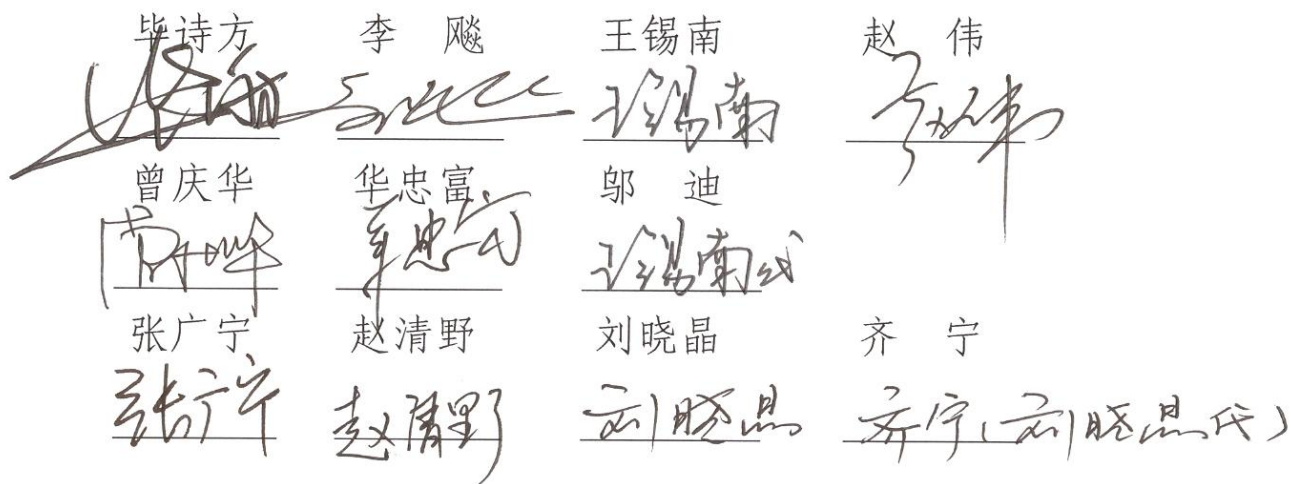 毕诗方 李 飚 王锡南 赵 伟
王锡南 赵伟
曾庆华 华忠富 邬 迪
华忠富 王锡南代
张广宁 赵清野 刘晓晶 齐 宁
张广宁 赵清野 刘晓晶 齐宁(刘晓晶代)